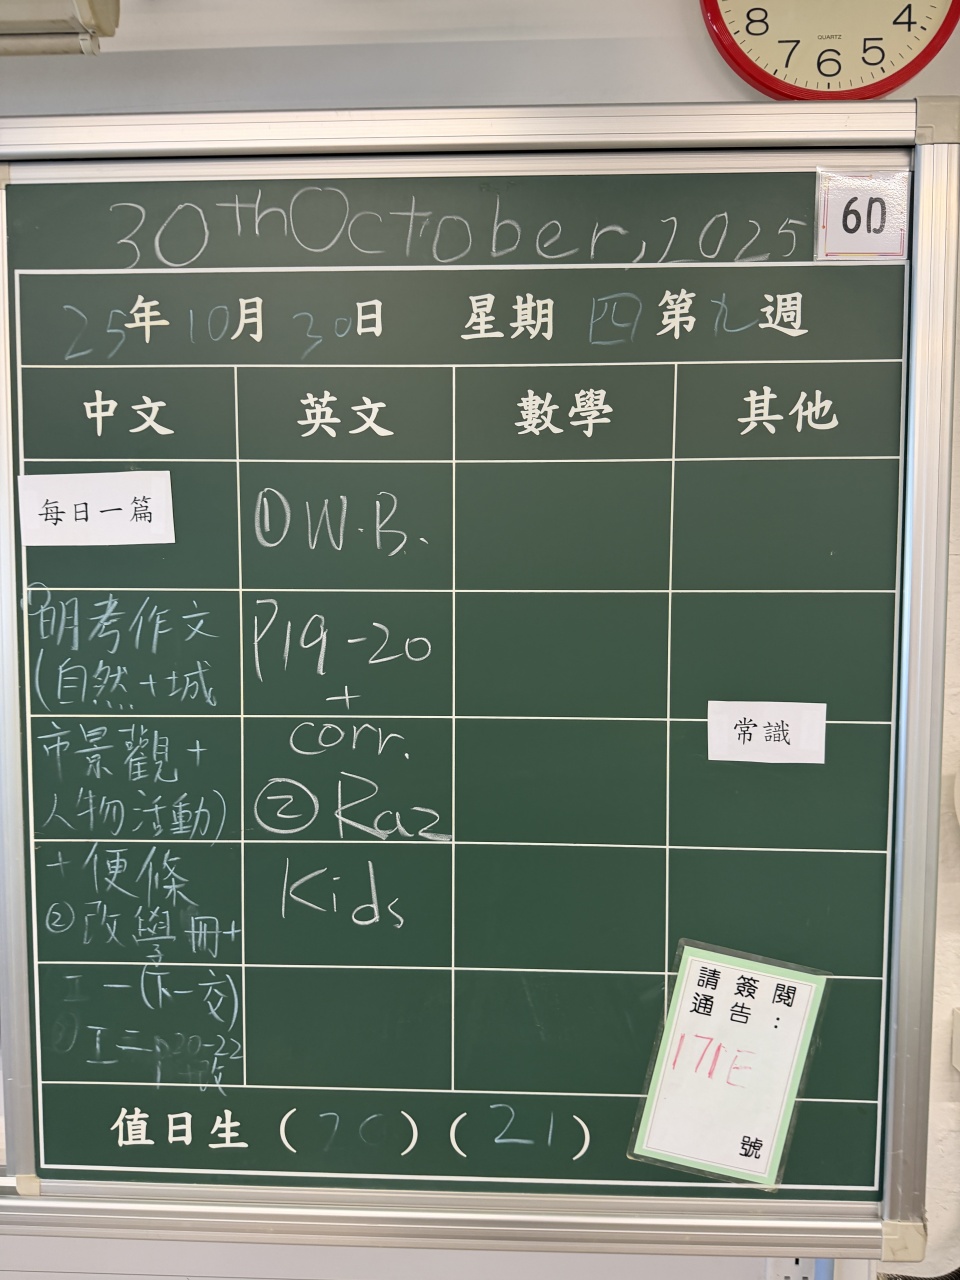 8 7 6 5 4
QUARTZ
30th October, 2025
6D
25年10月30日 星期四第九週
中文 英文 數學 其他
每日一篇
①W.B.
明考作文
(自然+城
市景觀+
人物活動)
+便條
②改學冊+
工一(下一交)
工二p20-22
+改
P19-20
+
corr.
②Raz
Kids
常識
請簽閱:
通告
171E
號
值日生( )(21)